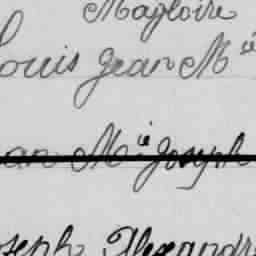 Magloire
Louis Jean M ie
ean M ie Joseph
oseph Alexandr